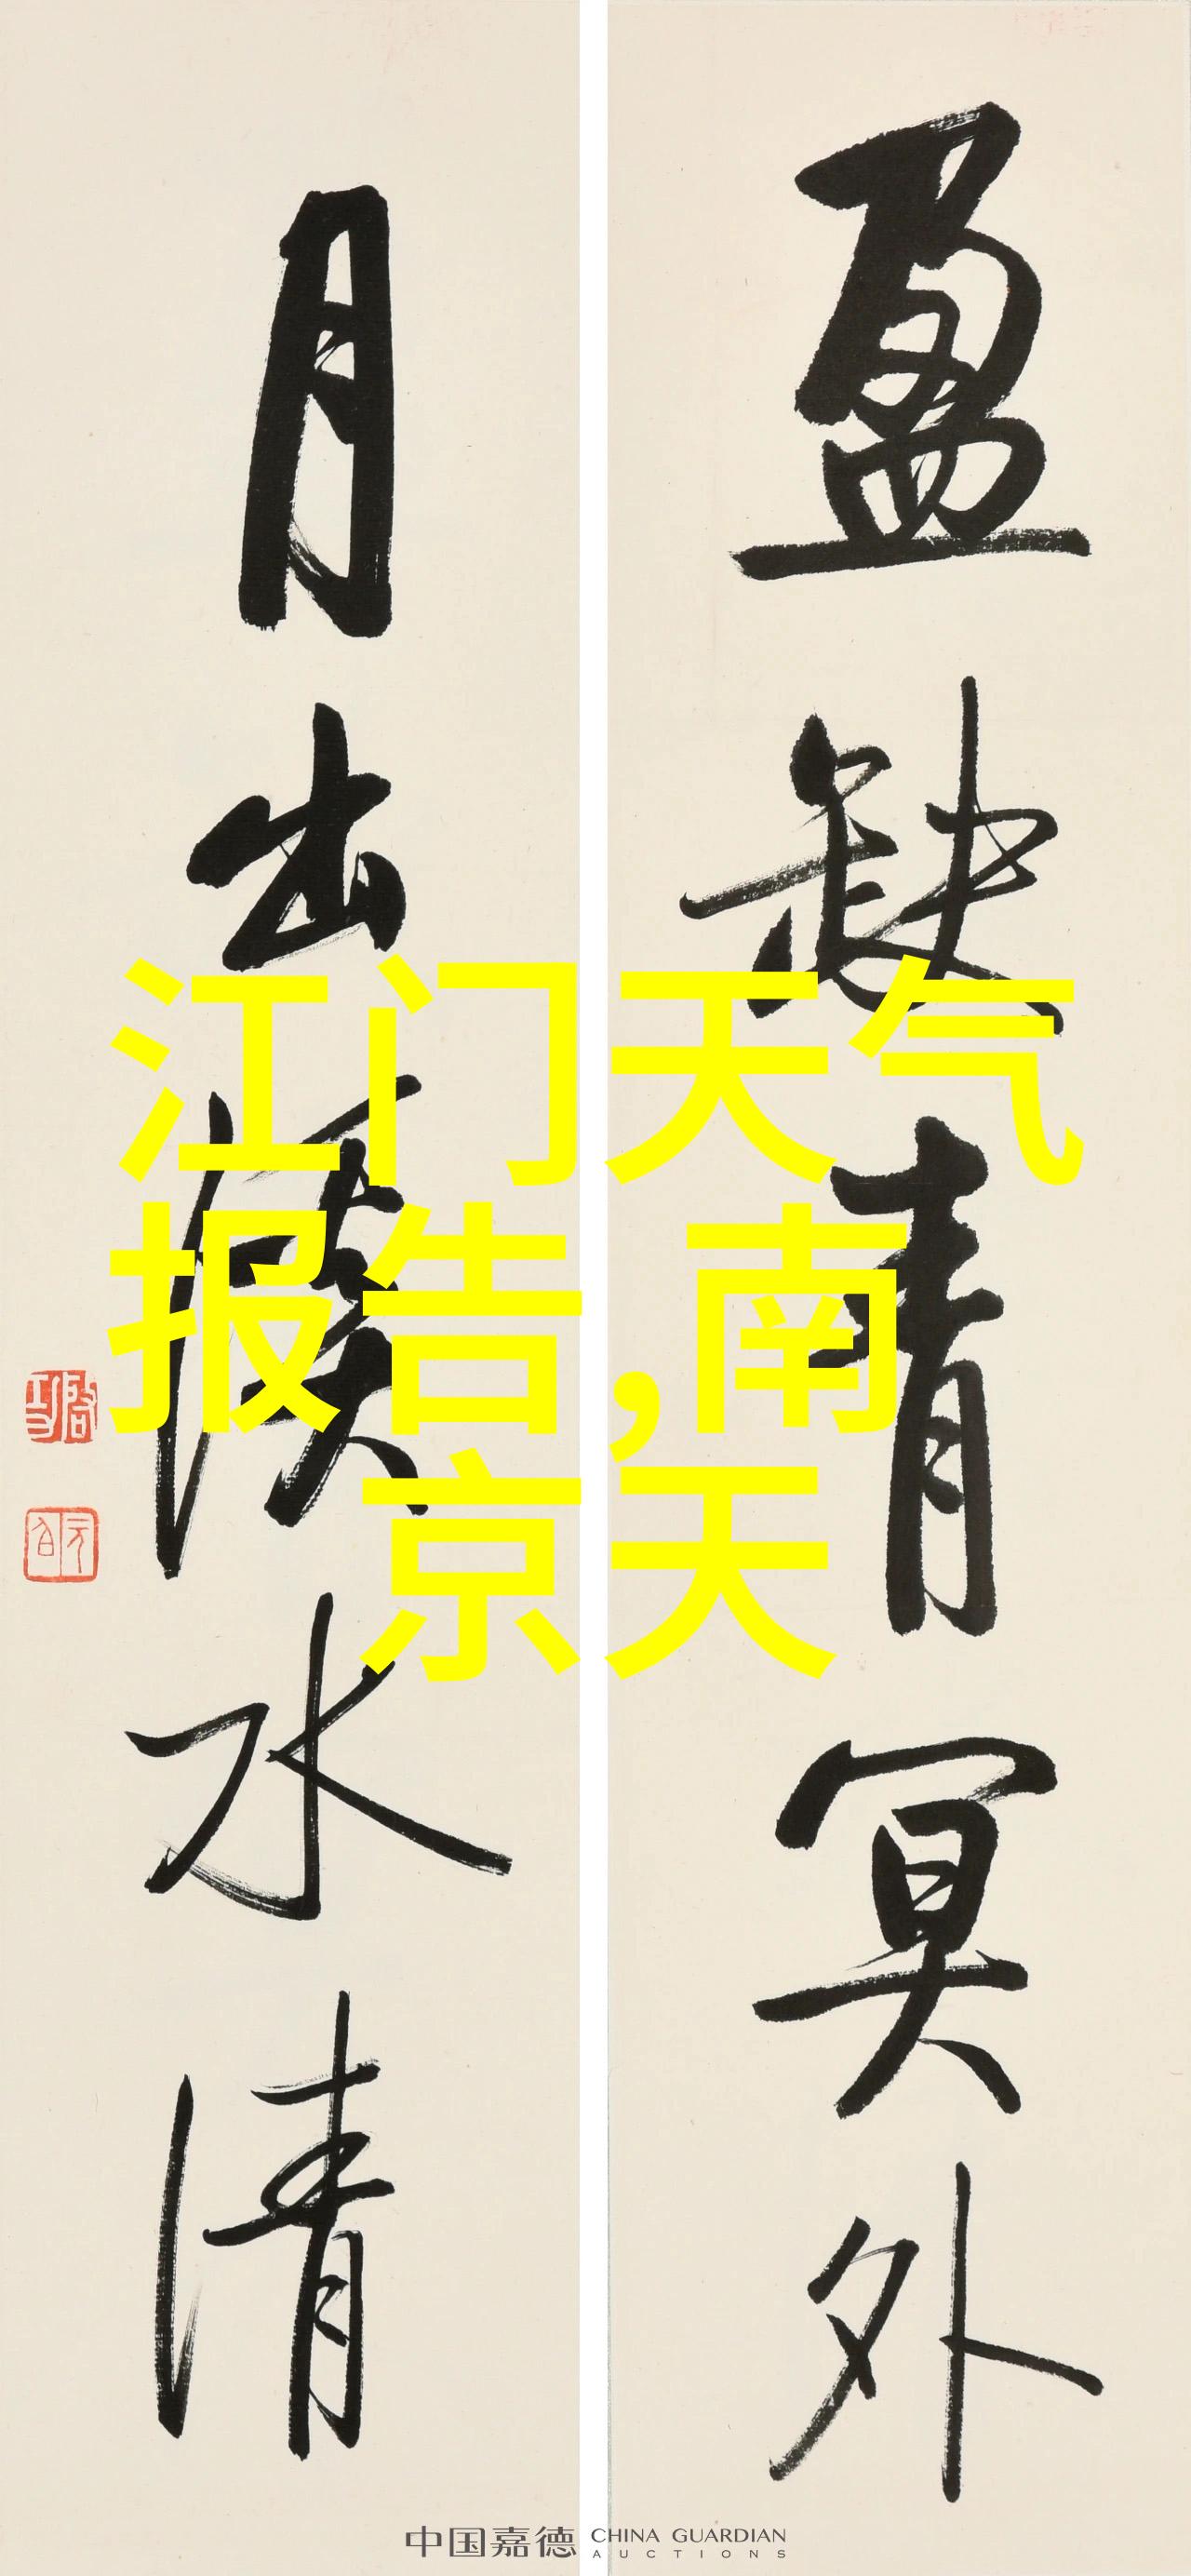 盈缺青冥外
月出水清
啓功
元白
江门天气
报告,南
京天
中国嘉德 CHINA GUARDIAN
AUCTIONS